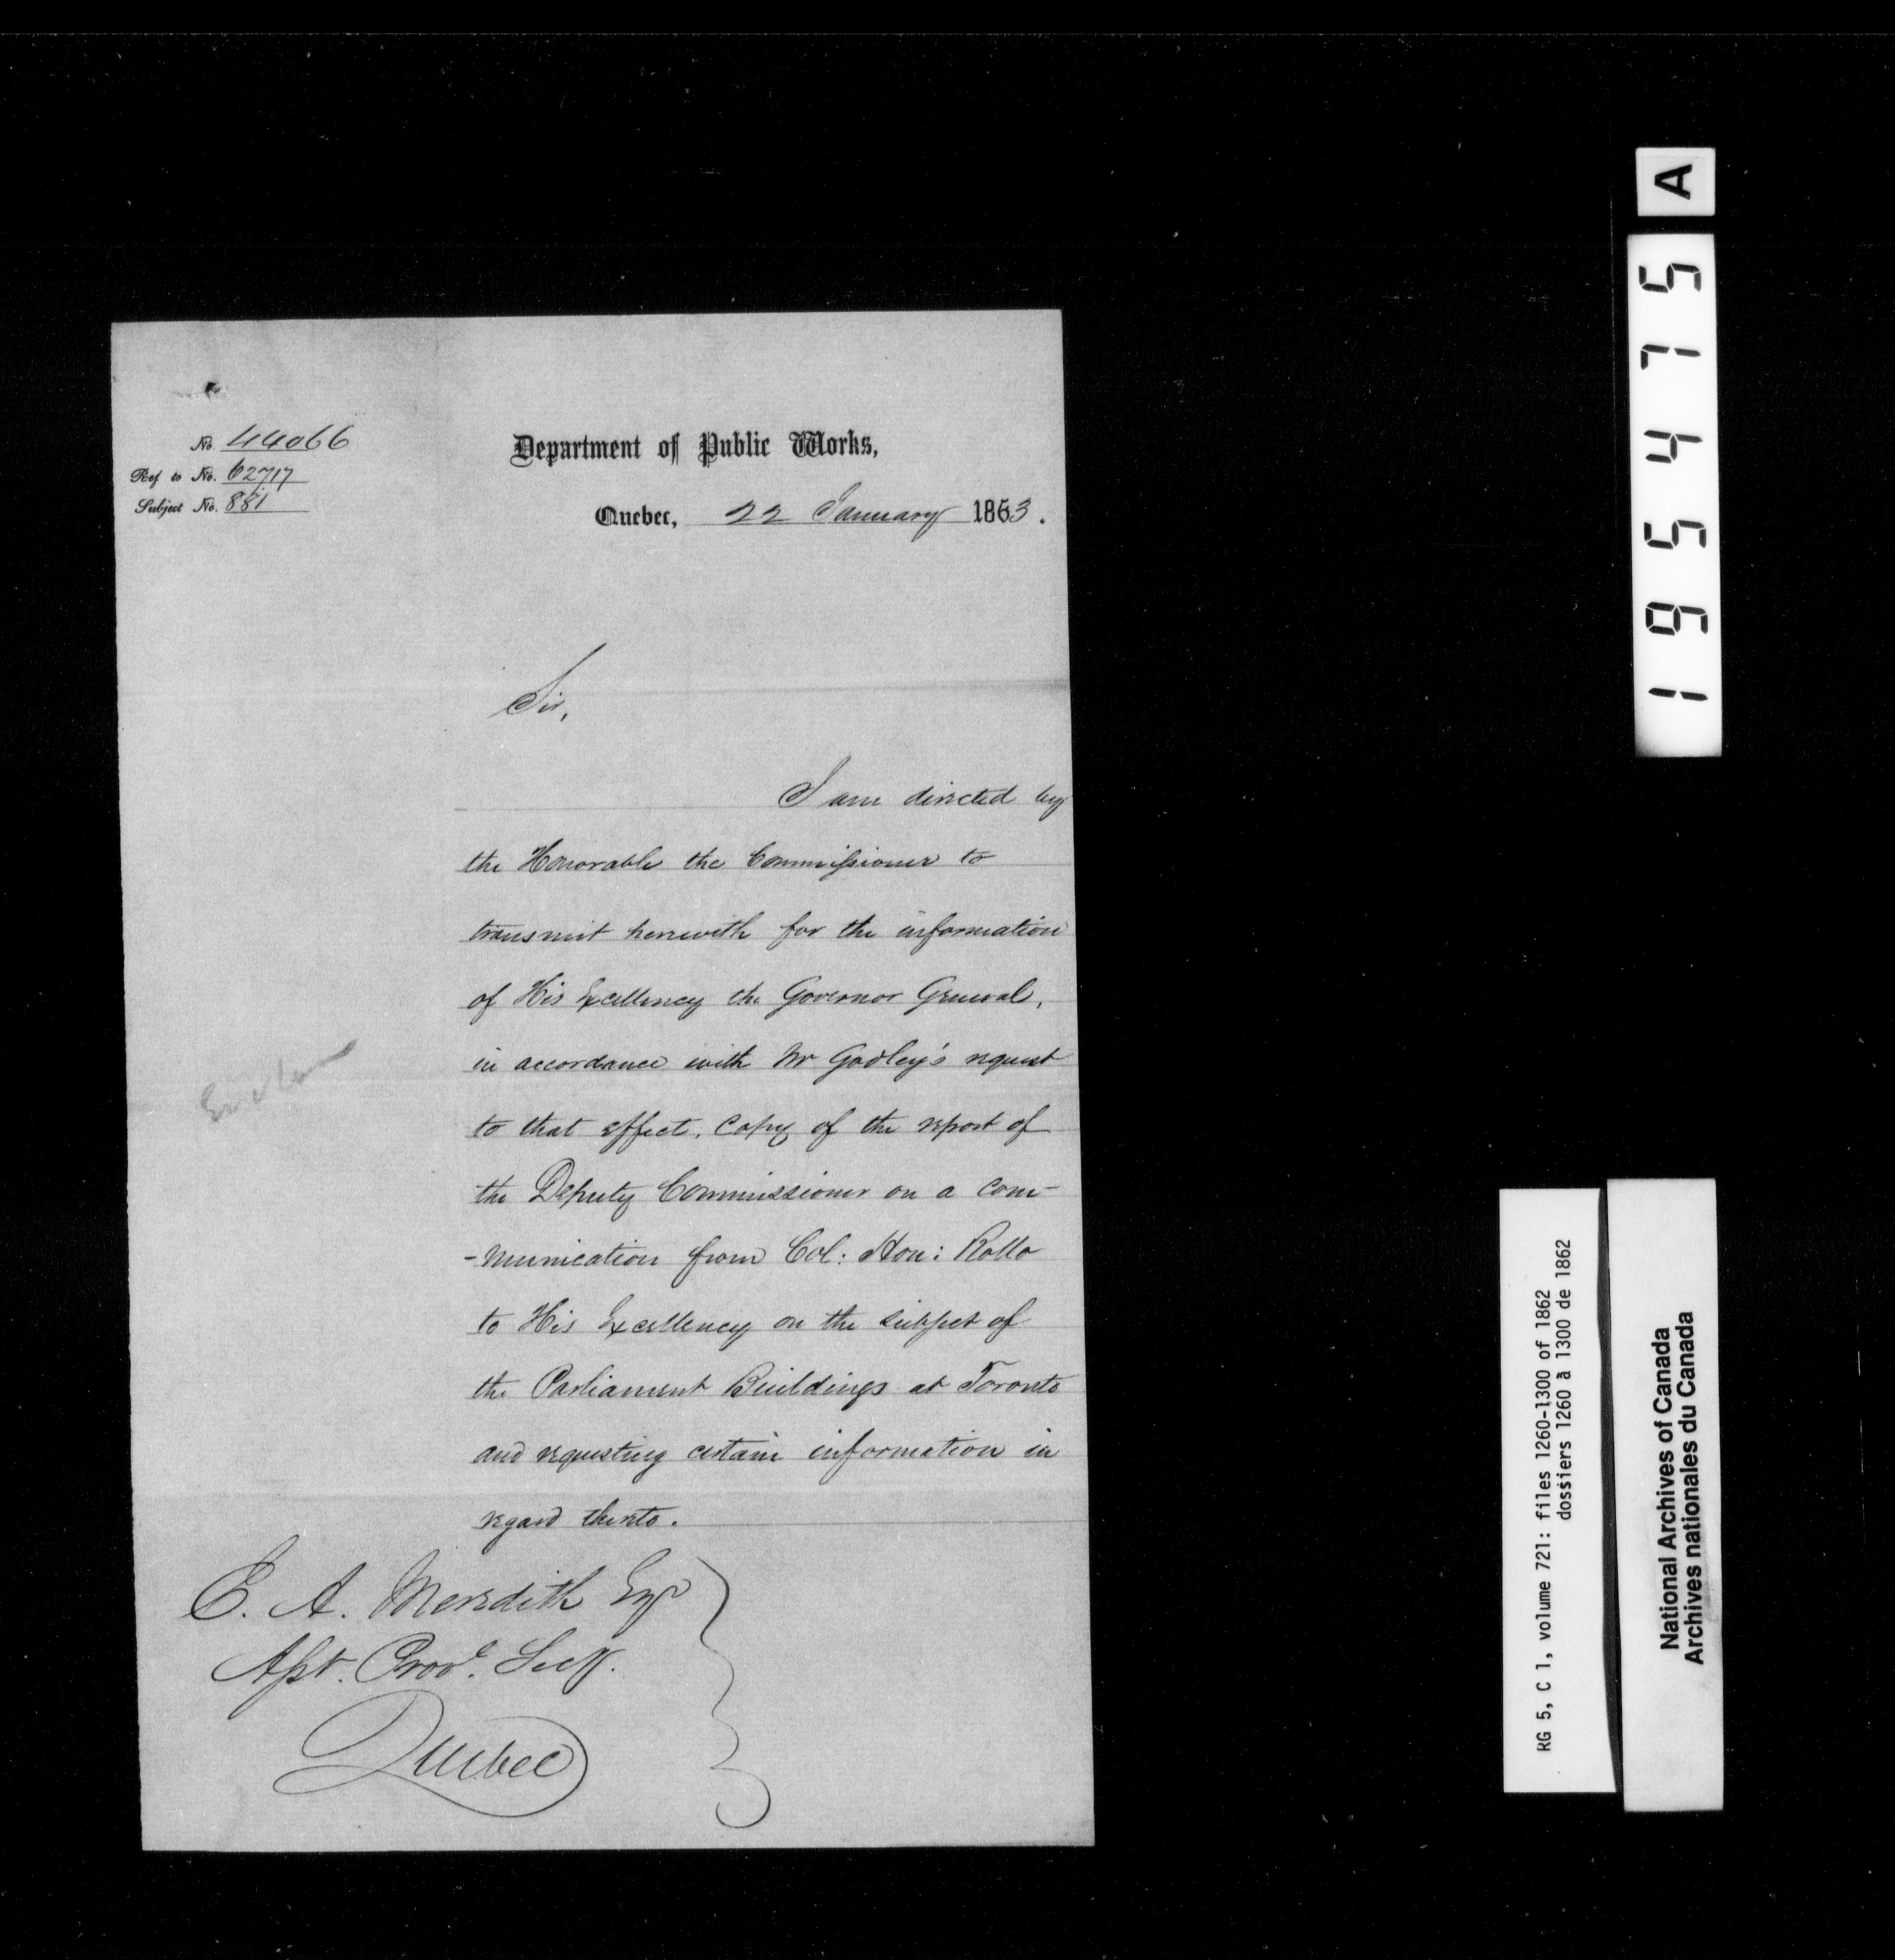 No. 44066
Ref to No. 62717
Subject No. 881
Department of Public Works,
Quebec, 22 January 1863.
Sir,
I am directed by
the Honorable the Commissioner to
transmit herewith for the information
of His Excellency the Governor General,
in accordance with Mr Godley's request
to that effect, copy of the report of
the Deputy Commissioner on a com-
-munication from Col: Hon: Rollo
to His Excellency on the subject of
the Parliament Buildings at Toronto
and requesting certain information in
regard thereto.
E. A. Meredith Esqr
Asst. Provl. Secy.
Quebec
195475 A
RG 5, C 1, volume 721: files 1260-1300 of 1862
dossiers 1260 à 1300 de 1862
National Archives of Canada
Archives nationales du Canada